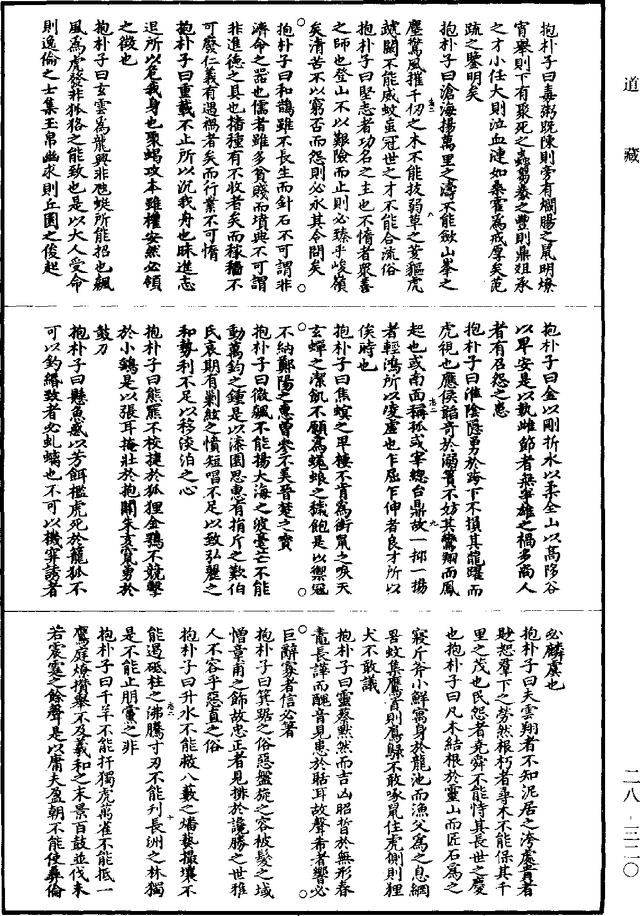 道藏
抱朴子曰毒粥既陳則旁有爛腸之鼠明燎
宵舉則下有聚死之蟲芻豢之豐則鼎俎承
之才小任大則泣血漣如桑霍爲戒厚矣范
疏之鑒明矣
抱朴子曰滄海揚萬里之濤不能斂山峯之
塵驚風摧千仞之木不能拔弱草之荄貙虎
虓闞不能威蚊虻冠世之才不能合流俗
抱朴子曰堅志者功名之主也不惰者衆善
之師也登山不以艱險而止則必臻乎峻嶺
矣清苦不以窮否而怨則必永其令問矣
抱朴子曰和鵲雖不長生而針石不可謂非
濟命之器也儒者雖多貧賤而墳典不可謂
非進德之具也播種有不收者矣而稼穡不
可廢仁義有遇禍者矣而行業不可惰
抱朴子曰重載不止所以沉我舟也昧進忘
退所以危我身也聚蝎攻本雖權安然必傾
之徵也
抱朴子曰玄雲爲龍興非虺蜓所能招也飆
風爲虎發非狐狢之能致也是以大人受命
則逸倫之士集玉帛幽求則丘園之俊起
抱朴子曰金以剛折水以柔全山以高陊谷
以卑安是以執雌節者無爭雄之禍多尚人
者有召怨之患
抱朴子曰淮陰隱勇於跨下不損其龍躍而
虎視也應侯韜奇於溺簀不妨其鸞翔而鳳
起也或南面稱孤或宰總台鼎故一抑一揚
者輕鴻所以凌虛也乍屈乍伸者良才所以
俟時也
抱朴子曰焦螟之卑棲不肯爲銜鼠之唳天
玄蟬之潔飢不願爲蜣蜋之穢飽是以禦寇
不納鄭陽之惠曾參不美晉楚之寶
抱朴子曰微飆不能揚大海之波毫芒不能
動萬鈞之鍾是以漆園思惠有捐斤之歎伯
氏哀期有剿絃之憤短唱不足以致弘麗之
和勢利不足以移淡泊之心
抱朴子曰熊羆不校捷於狐狸金鶚不競擊
於小鷂是以張耳掩壯於抱關朱亥窟勇於
鼓刀
抱朴子曰懸魚惑以芳餌檻虎死於籠狐不
可以釣緡致者必虬螭也不可以機穽誘者
必麟虞也
抱朴子曰夫雲翔者不知泥居之洿處貴者
尟恕羣下之勞然根朽者尋木不能保其千
里之茂也民怨者堯舜不能恃其長世之慶
也抱朴子曰凡木結根於靈山而匠石爲之
寢斤斧小鮮寓身於龍池而漁父爲之息網
罟蚊集鷹首則鳸不敢啄鼠住虎側則狸
犬不敢議
抱朴子曰靈蔡默然而吉凶昭晢於無形春
鼃長譁而醜音見患於聒耳故聲希者響必
巨辭寡者信必著
抱朴子曰箕踞之俗惡盤旋之容被髮之域
憎章甫之飾故忠正者見排於讒勝之世雅
人不容乎惡直之俗
抱朴子曰升水不能救八藪之燔爇撮壤不
能遏砥柱之沸騰寸刃不能刊長洲之林獨
是不能止朋黨之非
抱朴子曰千羊不能扞獨虎萬雀不能抵一
鷹庭燎攢舉不及羲和之末景百鼓並伐未
若震霆之餘聲是以庸夫盈朝不能使彝倫
二八-三二〇